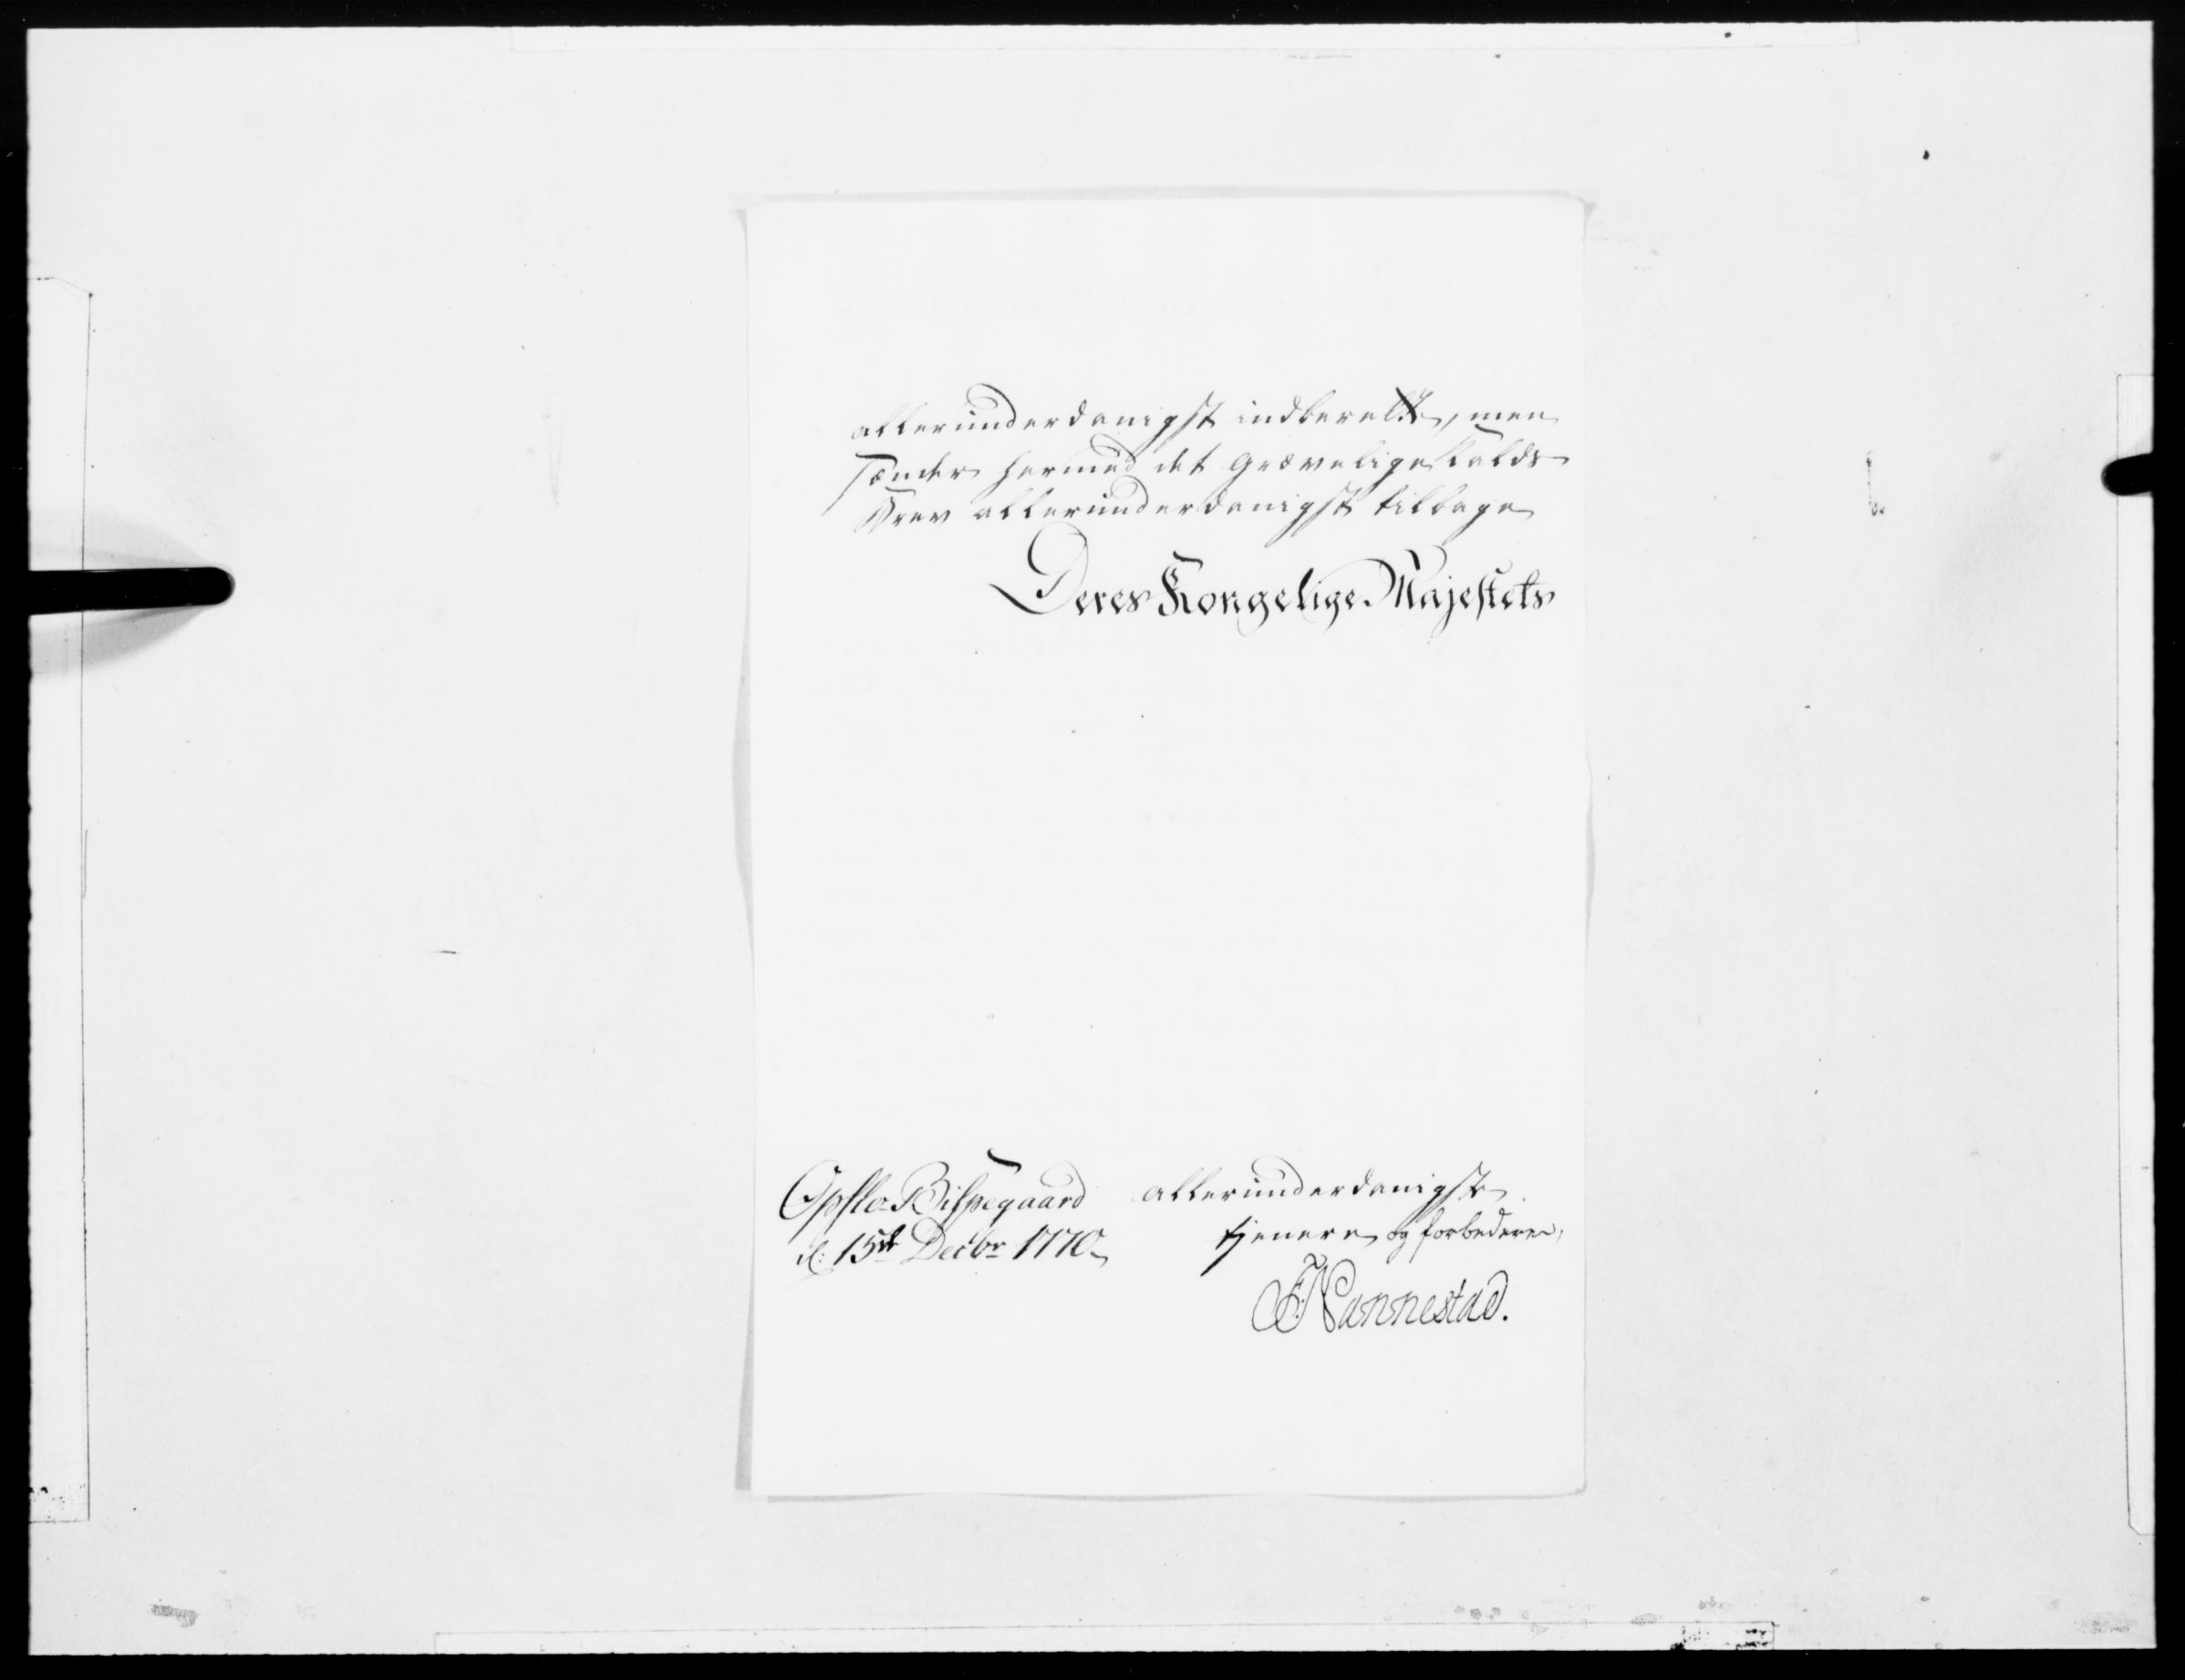 allerunderdanigst indberette, men
sender hermed det Grævelige Kalds
Brev allerunderdanigst tilbage
Deres Kongelige Majestets
Opslo-Bispegaard
d: 15de Decbr 1770
allerunderdanigste
tjenere og forbedere,
F: Nannestad.